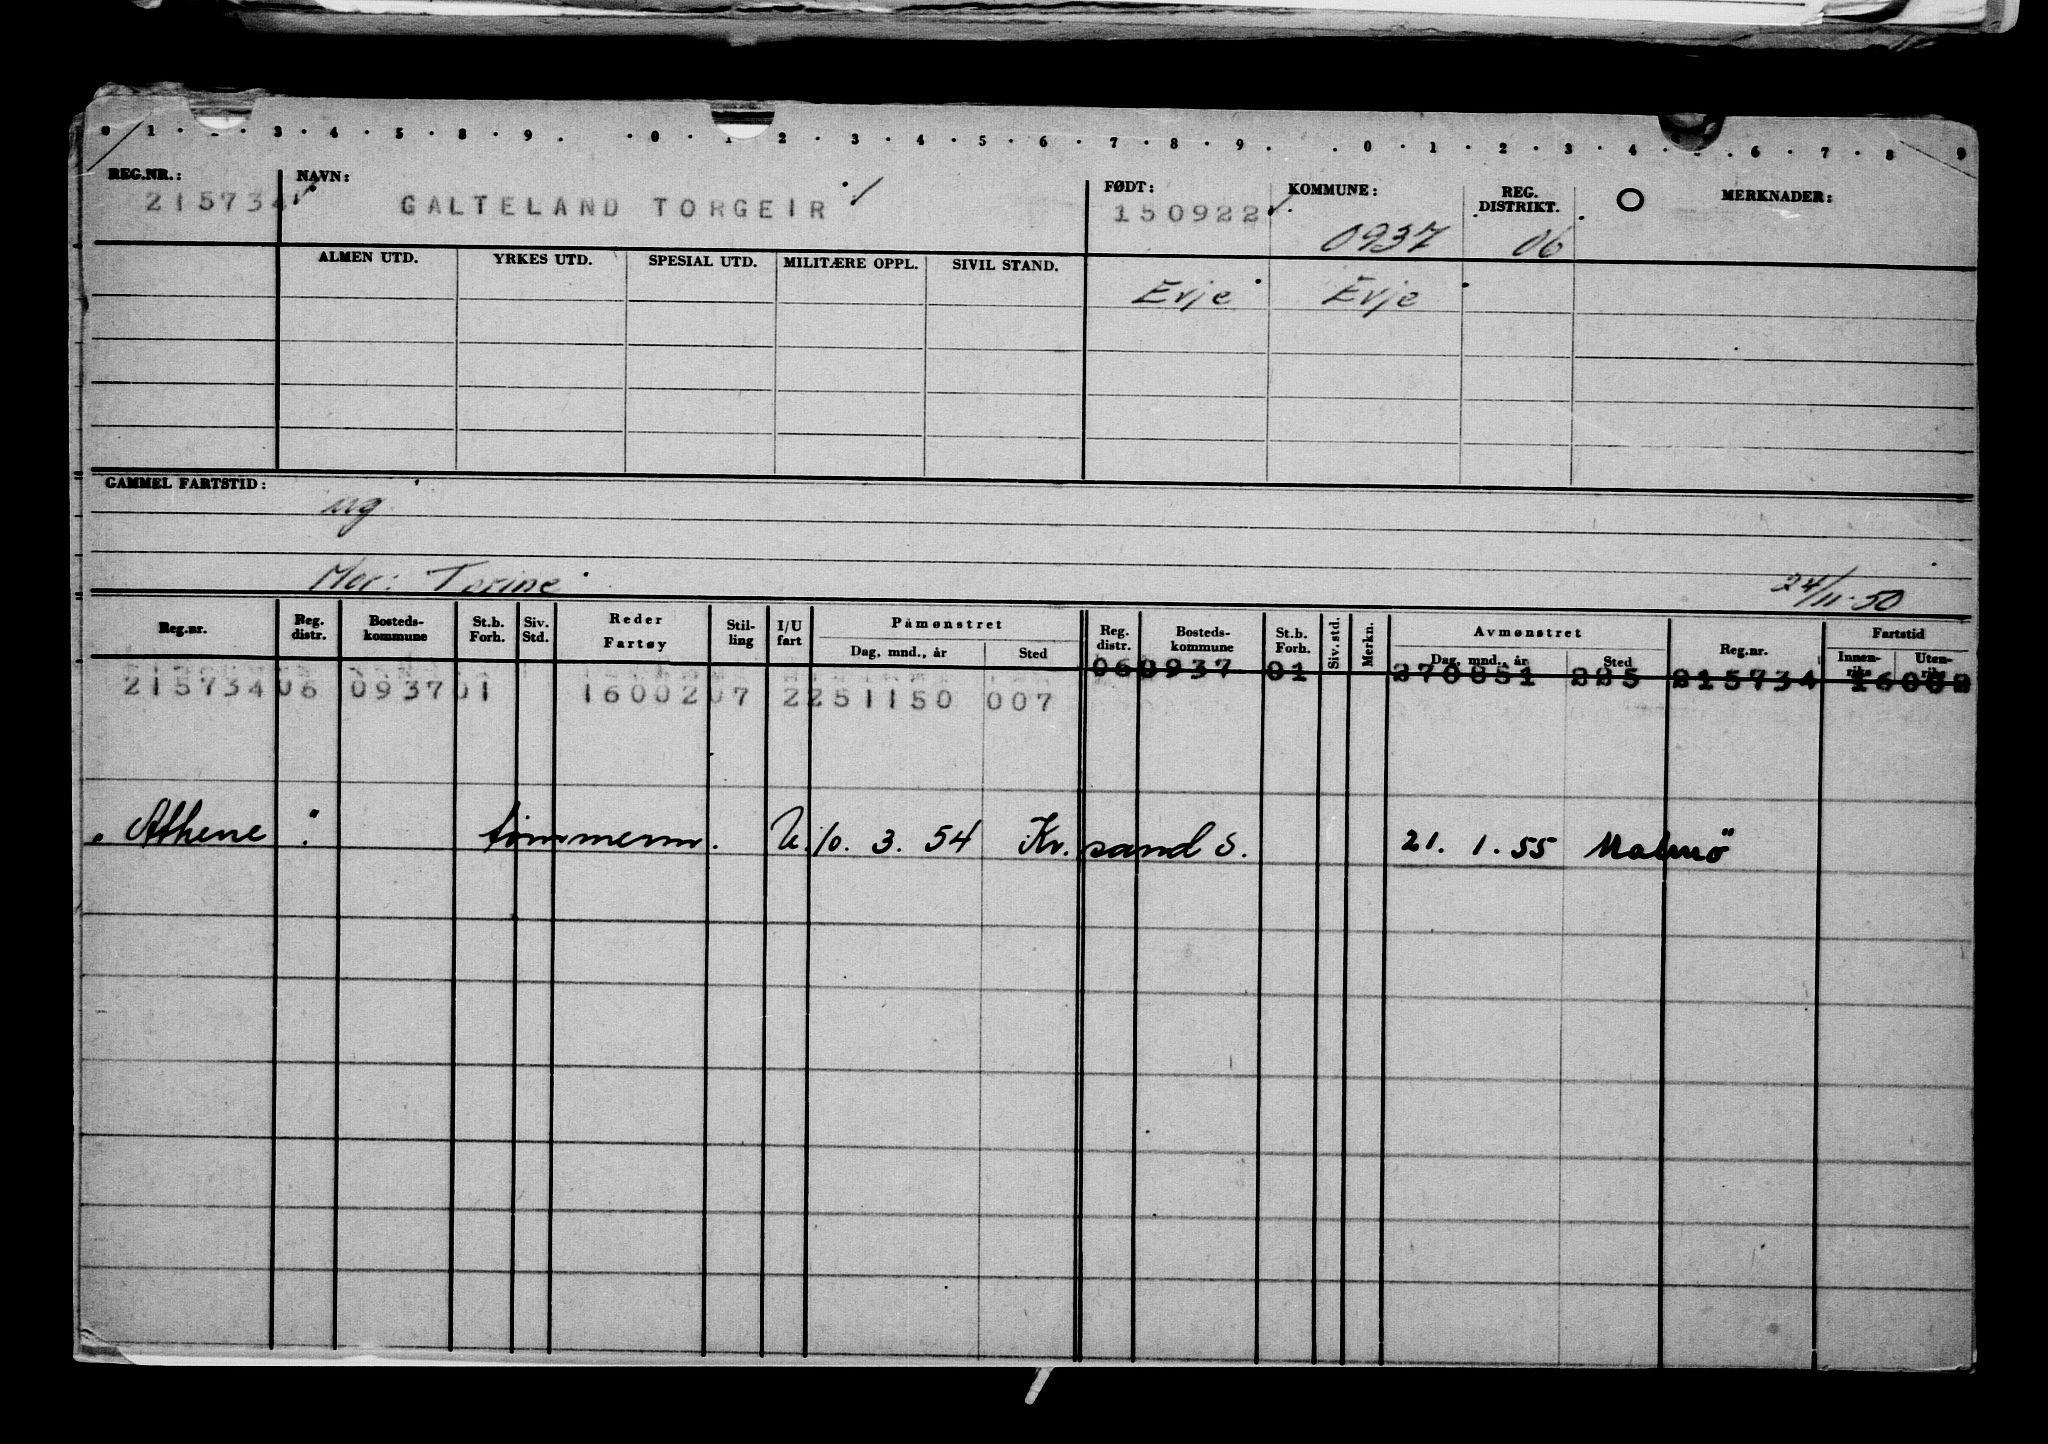 0 1 · · 3 · 4 · 5 · 8 · 9 · · 0 · 1 2 · 3 · 4 · 5 · 6 · 7 · 8 · 9 · · 0 · 1 · 2 · 3 · 4 · · 6 · 7 · 8 · 9
REG.NR.: NAVN: FØDT: KOMMUNE: REG. DISTRIKT. MERKNADER:
215734 GALTELAND TORGEIR 150922 0937 06
ALMEN UTD. YRKES UTD. SPESIAL UTD. MILITÆRE OPPL. SIVIL STAND.
Evje Evje
GAMMEL FARTSTID:
ug
Mor: Torine 24/11-50
Reg.nr. Reg. distr. Bosteds-kommune St.b. Forh. Siv. Std. Reder Fartøy Stil-ling I/U fart Påmønstret Dag, mnd., år Sted Reg. distr. Bosteds-kommune St.b. Forh. Siv. std. Merkn. Avmønstret Dag, mnd., år Sted Reg.nr. Fartstid Innen-riks Uten-riks
060937 01 270851 225 215734 16002
215734 06 0937 01 16002 07 2 251150 007
"Athene" tømmerm. U. 10. 3. 54 Kr. sand S. 21. 1. 55 Malmö